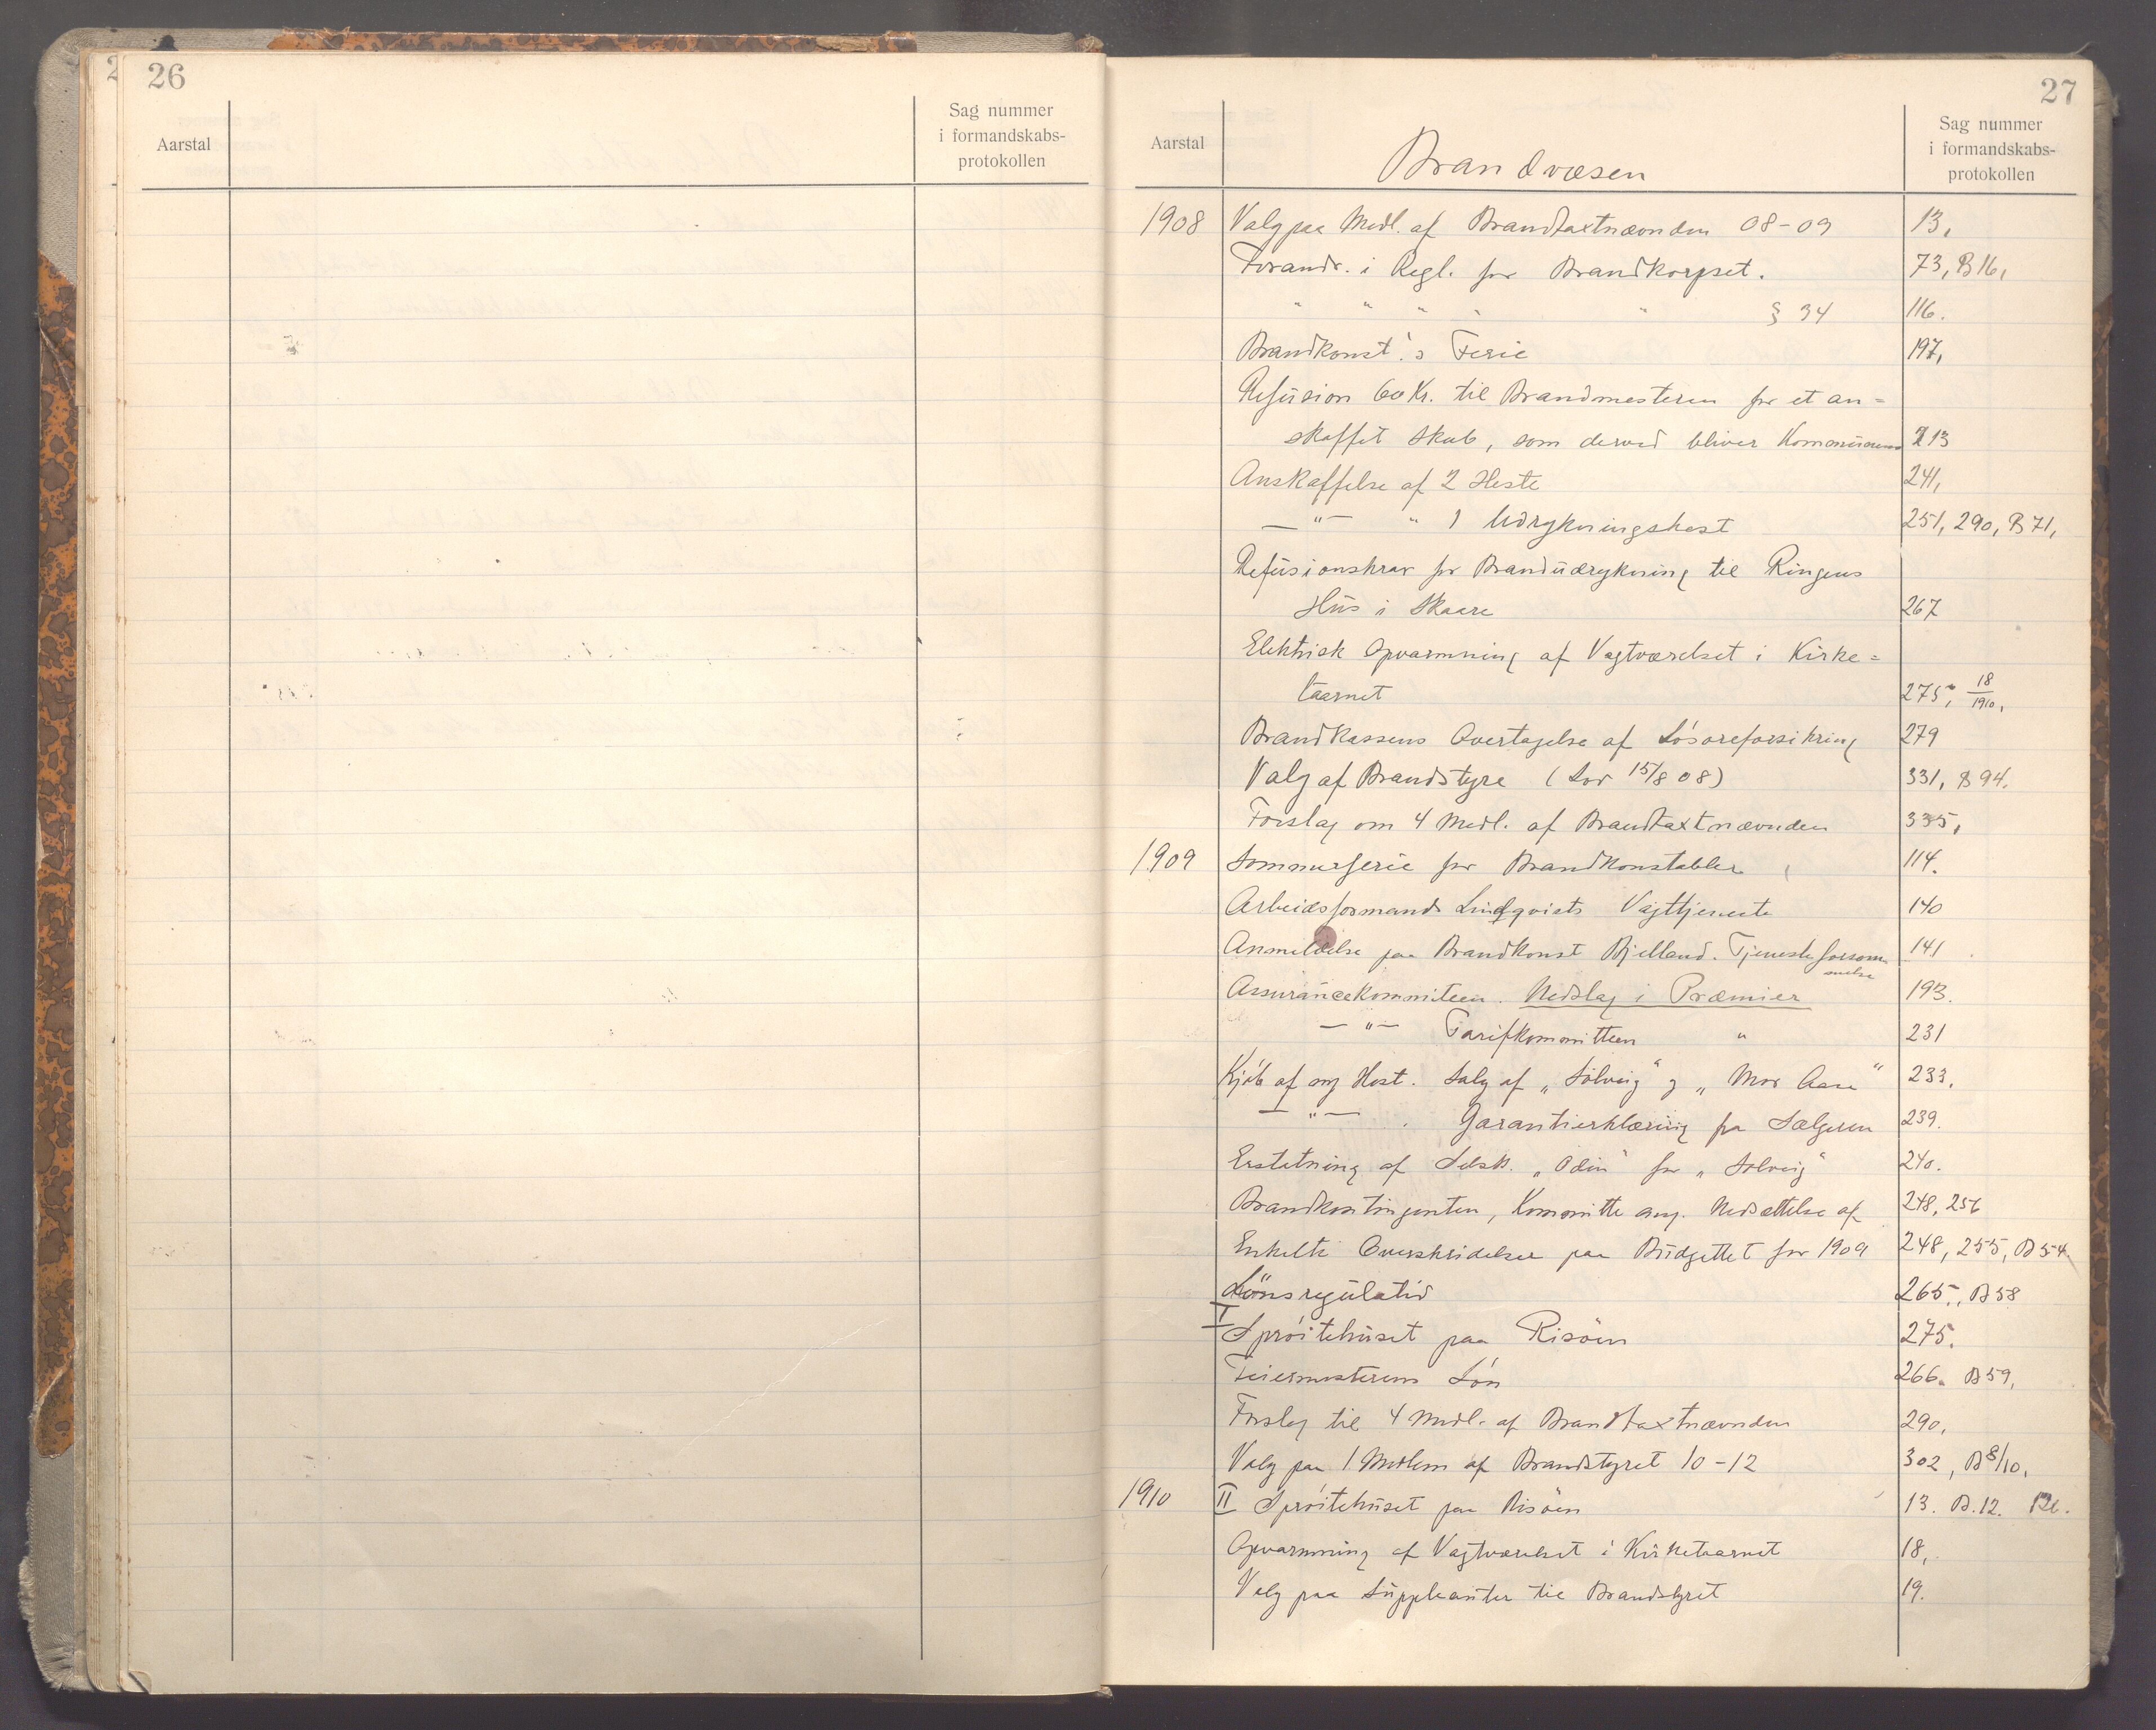 26
Aarstal
Sag nummer
i formandskabs-
protokollen
27
Aarstal
Brandvæsen
Sag nummer
i formandskabs-
protokollen
1908 Valg paa Medl. af Brandtaxtnævnden 08-09 13,
Forandr. i Regl. for Brandkorpset. 73, B16,
" " " " " § 34 116.
Brandkonst.'s Ferie 197,
Refusion 60 Kr. til Brandmesteren for et an=
skaffet Skab, som derved bliver Kommunens 213
Anskaffelse af 2 Heste 241,
— " — " 1 Udrykningshest 251, 290, B71,
Refusionskrav for Brandudrykning til Ringens
Hus i Skaare 267
Elektrisk Opvarmning af Vagtværelset i Kirke=
taarnet 275, 18/1910,
Brandkassens Overtagelse af Løsøreforsikring 279
Valg af Brandstyre (Lov 15/8 08) 331, B94.
Forslag om 4 Medl. af Brandtaxtnævnden 335,
1909 Sommerferie for Brandkonstabler 114.
Arbeidsformand Lindqvists Vagttjeneste 140
Anmeldelse paa Brandkonst Bjelland. Tjenesteforsøm-
melse 141
Assurancekommiteen. Nedslag i Præmier 193.
— " — Tarifkommitteen " 231
Kjøb af ny Hest. Salg af „Sólveig" og „Mor Aase" 233.
— " — . Garantierklæring fra Sælgeren 239.
Erstatning af Selsk. „Odin" for „Solveig" 240.
Brandkontingenten, Kommitte ang. Nedsættelse af 248, 256
Enkelte Overskridelser paa Budgettet for 1909 248, 255, B54.
Lønsregulativ 265., B58
I Sprøitehuset paa Risøen 275.
Feiermesterens Løn 266. B59,
Forslag til 4 Medl. af Brandtaxtnævnden 290,
Valg paa 1 Medlem af Brandstyret 10-12 302, B8/10,
1910 II Sprøitehuset paa Risøen 13. B.12.
Opvarmning af Vagtværelset i Kirketaarnet 18,
Valg paa Suppleanter til Brandstyret 19.